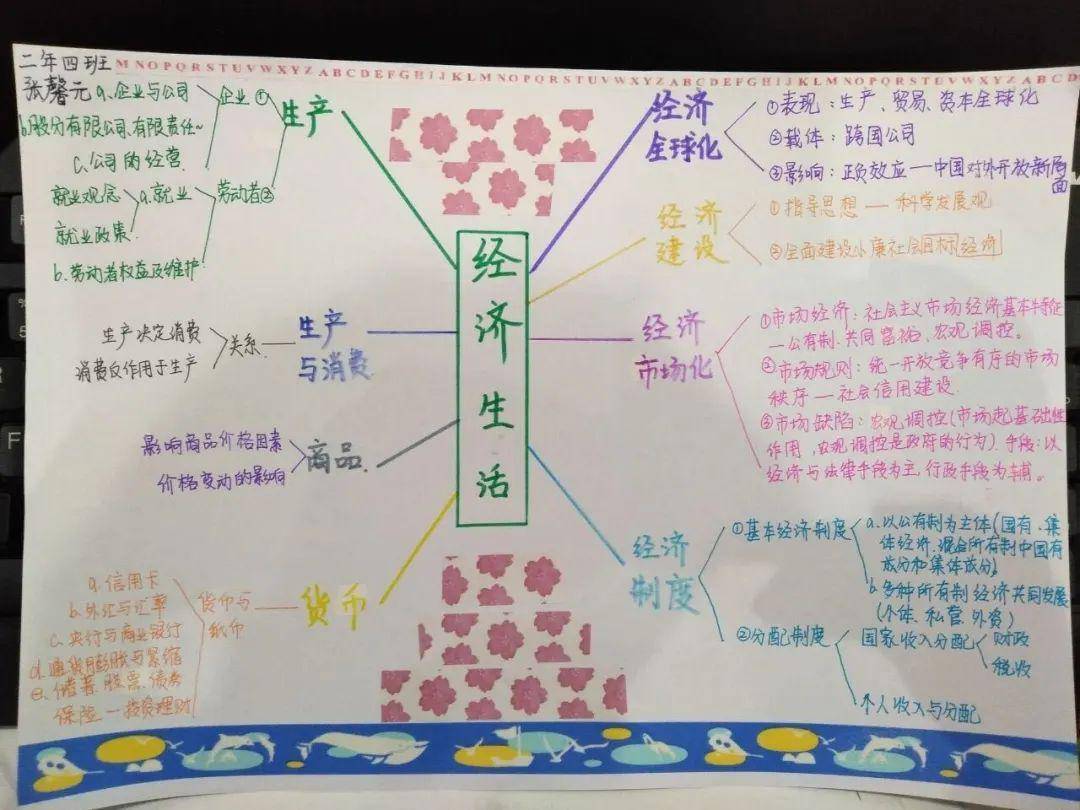 二年四班
张馨元
MNOPQRSTUVWXYZABCDEFGHIJKLMNOPQRSTUVWXYZABCDEFGHIJKLMNOPQRSTUVWXYZABCD
经济生活
生产
企业①
a.企业与公司
b股份有限公司、有限责任~
c.公司的经营
劳动者②
a.就业
就业观念
就业政策
b.劳动者权益及维护
生产
与消费
关系
生产决定消费
消费反作用于生产
商品
影响商品价格因素
价格变动的影响
货币
货币与
纸币
a.信用卡
b.外汇与汇率
c.央行与商业银行
d.通货膨胀与紧缩
e.储蓄、股票、债券
保险—投资理财
经济
全球化
①表现：生产、贸易、资本全球化
②载体：跨国公司
③影响：正负效应—中国对外开放新局面
经济
建设
①指导思想—科学发展观
②全面建设小康社会目标经济
经济
市场化
①市场经济：社会主义市场经济基本特征
—公有制、共同富裕、宏观调控。
②市场规则：统一开放竞争有序的市场
秩序—社会信用建设
③市场缺陷：宏观调控(市场起基础性
作用，宏观调控是政府的行为)手段：以
经济与法律手段为主，行政手段为辅。
经济
制度
①基本经济制度
a.以公有制为主体(国有、集
体经济、混合所有制中国有
成分和集体成分)
b多种所有制经济共同发展
(个体、私营、外资)
②分配制度
国家收入分配
财政
税收
个人收入与分配